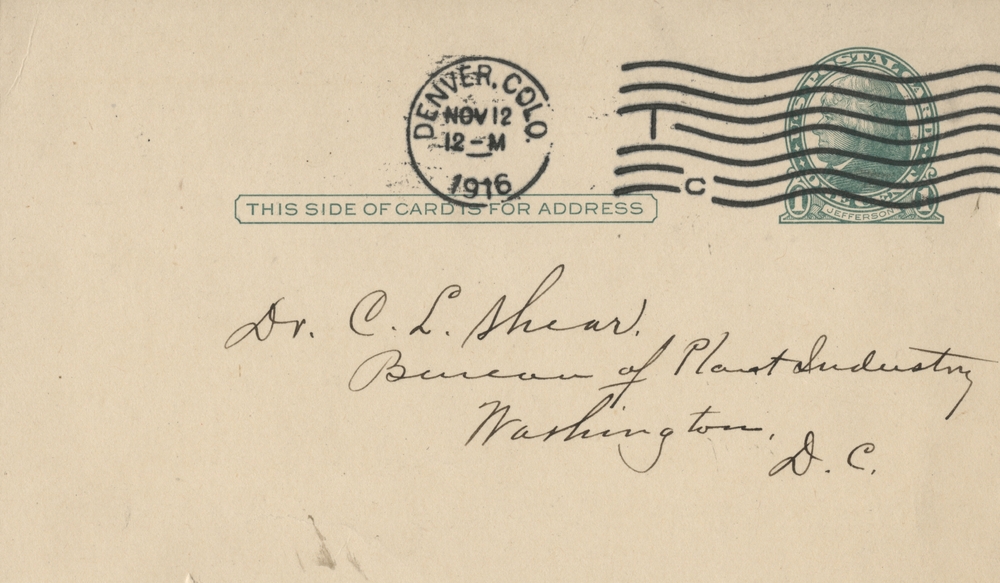 DENVER, COLO.
NOV 12
12 - M
1916
T
C
POSTAL CARD
1 JEFFERSON 1
THIS SIDE OF CARD IS FOR ADDRESS
Dr. C. L. Shear.
Bureau of Plant Industry
Washington,
D. C.